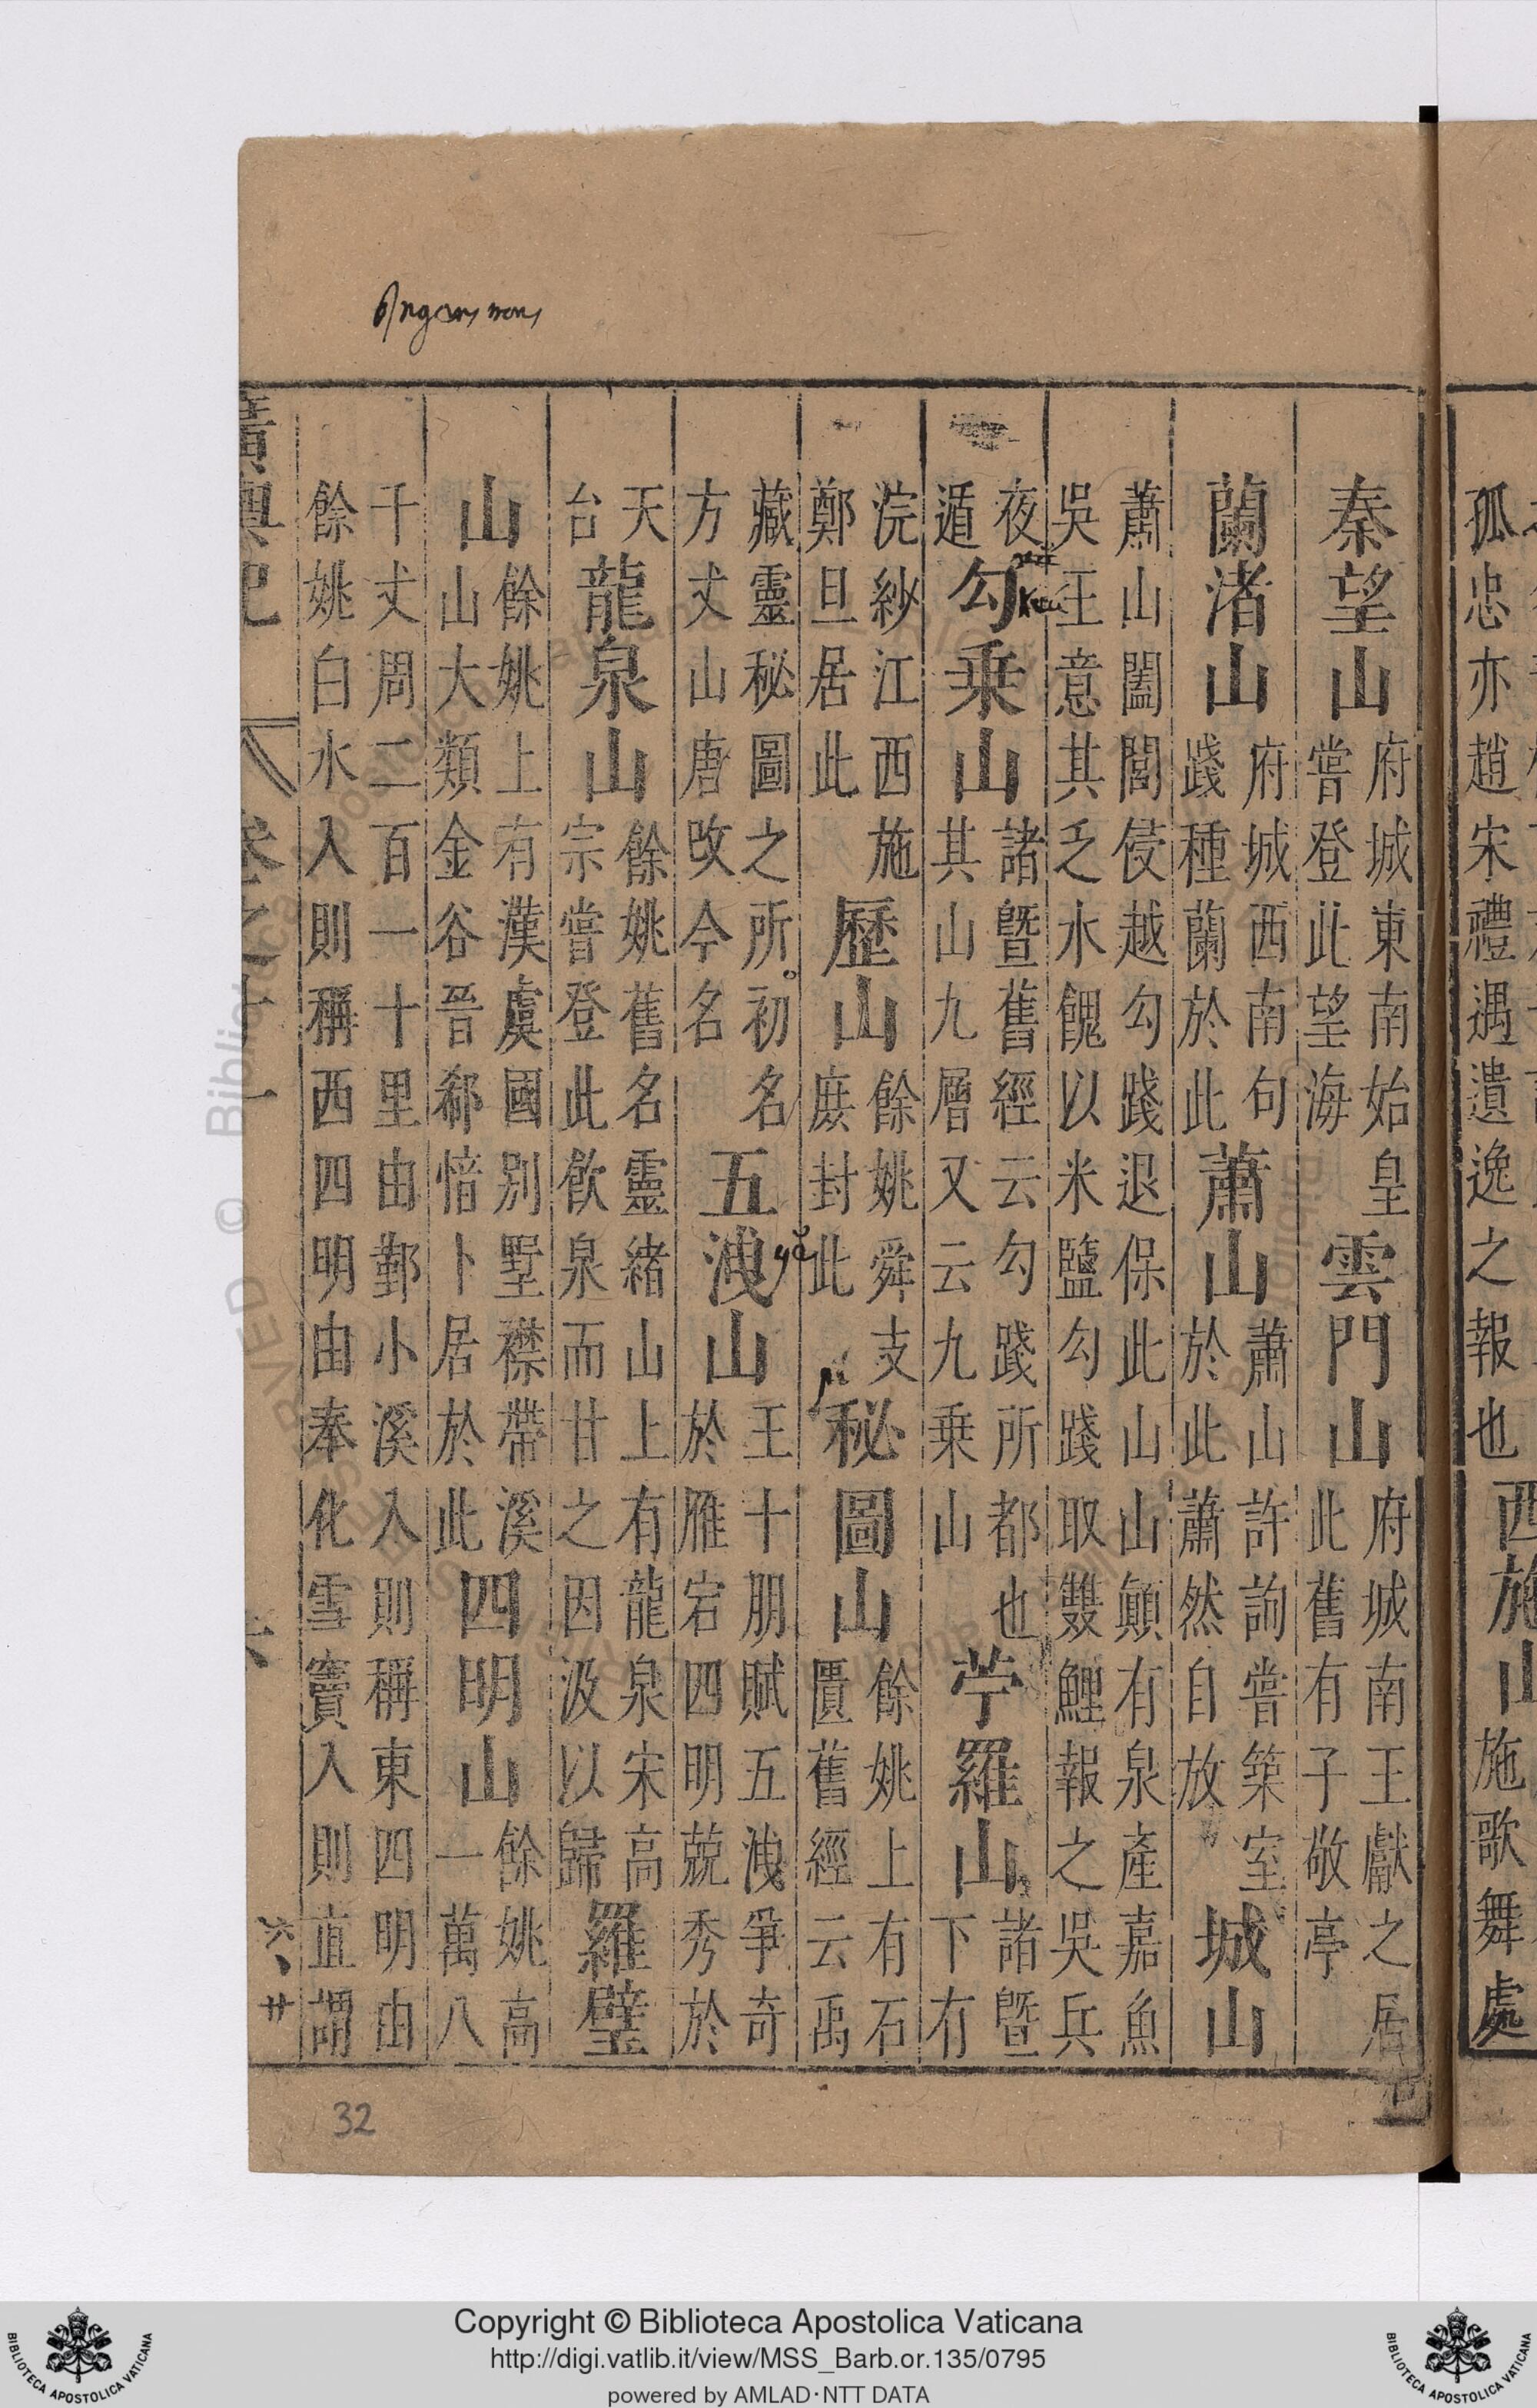 孤忠亦趙宋禮遇遺逸之報也西施山施歌舞處
秦望山府城東南始皇嘗登此望海雲門山府城南王獻之居此舊有子敬亭
蘭渚山府城西南句踐種蘭於此蕭山蕭山許詢嘗築室於此蕭然自放城山
蕭山闔閭侵越勾踐退保此山山顛有泉產嘉魚吳王意其乏水餽以米鹽勾踐取雙鯉報之吳兵
夜遁勾乗山諸曁舊經云勾踐所都也其山九層又云九乗山苧羅山諸曁下有
keu
浣紗江西施鄭旦居此歷山餘姚舜支庶封此秘圖山餘姚上有石匱舊經云禹
pi
藏靈秘圖之所初名方丈山唐改今名五洩山王十朋賦五洩爭奇於雁宕四明兢秀於
ye
天台龍泉山餘姚舊名靈緒山上有龍泉宋高宗嘗登此飲泉而甘之因汲以歸羅璧
山餘姚上有漢虞國別墅襟帶溪山大類金谷晉郗愔卜居於此四明山餘姚高一萬八
千丈周二百一十里由鄞小溪入則稱東四明由餘姚白水入則稱西四明由奉化雪竇入則直謂
廣輿記 卷之十一 六
六廿
32
Copyright © Biblioteca Apostolica Vaticana
http://digi.vatlib.it/view/MSS_Barb.or.135/0795
powered by AMLAD·NTT DATA
BIBLIOTECA APOSTOLICA VATICANA
BIBLIOTECA APOSTOLICA VATICANA